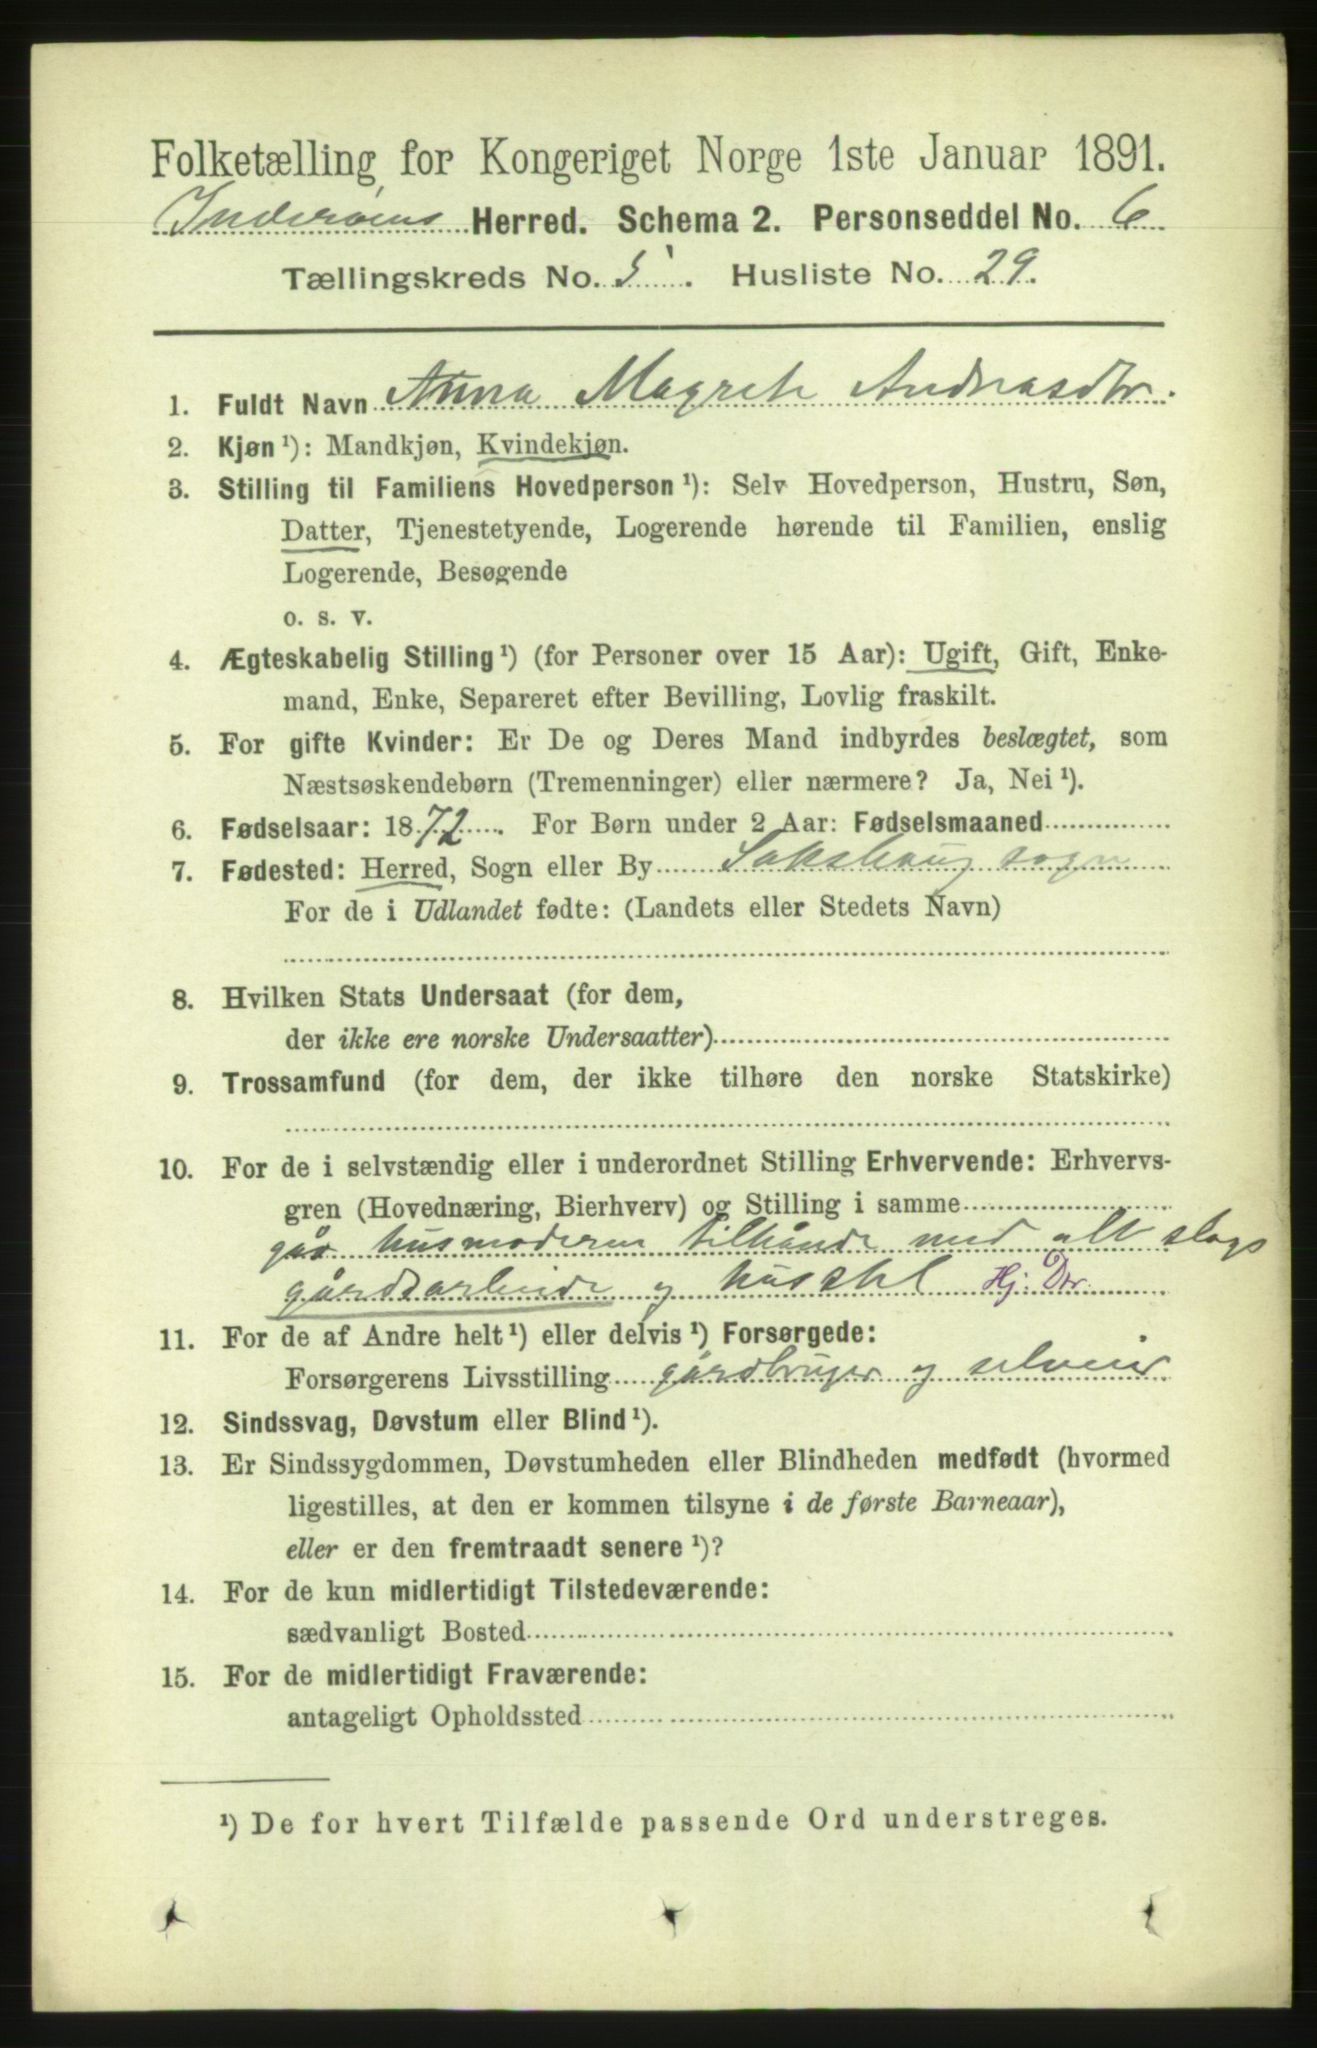 Folketælling for Kongeriget Norge 1ste Januar 1891.
Inderøens Herred. Schema 2. Personseddel No. 6
Tællingskreds No. 5. Husliste No. 29.
1. Fuldt Navn Anna Magreta Andreasdtr.
2. Kjøn¹): Mandkjøn, Kvindekjøn.
3. Stilling til Familiens Hovedperson¹): Selv Hovedperson, Hustru, Søn,
Datter, Tjenestetyende, Logerende hørende til Familien, enslig
Logerende, Besøgende
o. s. v.
4. Ægteskabelig Stilling¹) (for Personer over 15 Aar): Ugift, Gift, Enke-
mand, Enke, Separeret efter Bevilling, Lovlig fraskilt.
5. For gifte Kvinder: Er De og Deres Mand indbyrdes beslægtet, som
Næstsøskendebørn (Tremenninger) eller nærmere? Ja, Nei¹).
6. Fødselsaar: 1872. For Børn under 2 Aar: Fødselsmaaned
7. Fødested: Herred, Sogn eller By Sakshaug sogn
For de i Udlandet fødte: (Landets eller Stedets Navn)
8. Hvilken Stats Undersaat (for dem,
der ikke ere norske Undersaatter)
9. Trossamfund (for dem, der ikke tilhøre den norske Statskirke)
10. For de i selvstændig eller i underordnet Stilling Erhvervende: Erhvervs-
gren (Hovednæring, Bierhverv) og Stilling i samme
går husmoderen tilhånde med alt slags
gårdsarbeide og husstel Hj. Dtr.
11. For de af Andre helt¹) eller delvis¹) Forsørgede:
Forsørgerens Livsstilling gårdbruger og selveier
12. Sindssvag, Døvstum eller Blind¹).
13. Er Sindssygdommen, Døvstumheden eller Blindheden medfødt (hvormed
ligestilles, at den er kommen tilsyne i de første Barneaar),
eller er den fremtraadt senere¹)?
14. For de kun midlertidigt Tilstedeværende:
sædvanligt Bosted
15. For de midlertidigt Fraværende:
antageligt Opholdssted
¹) De for hvert Tilfælde passende Ord understreges.